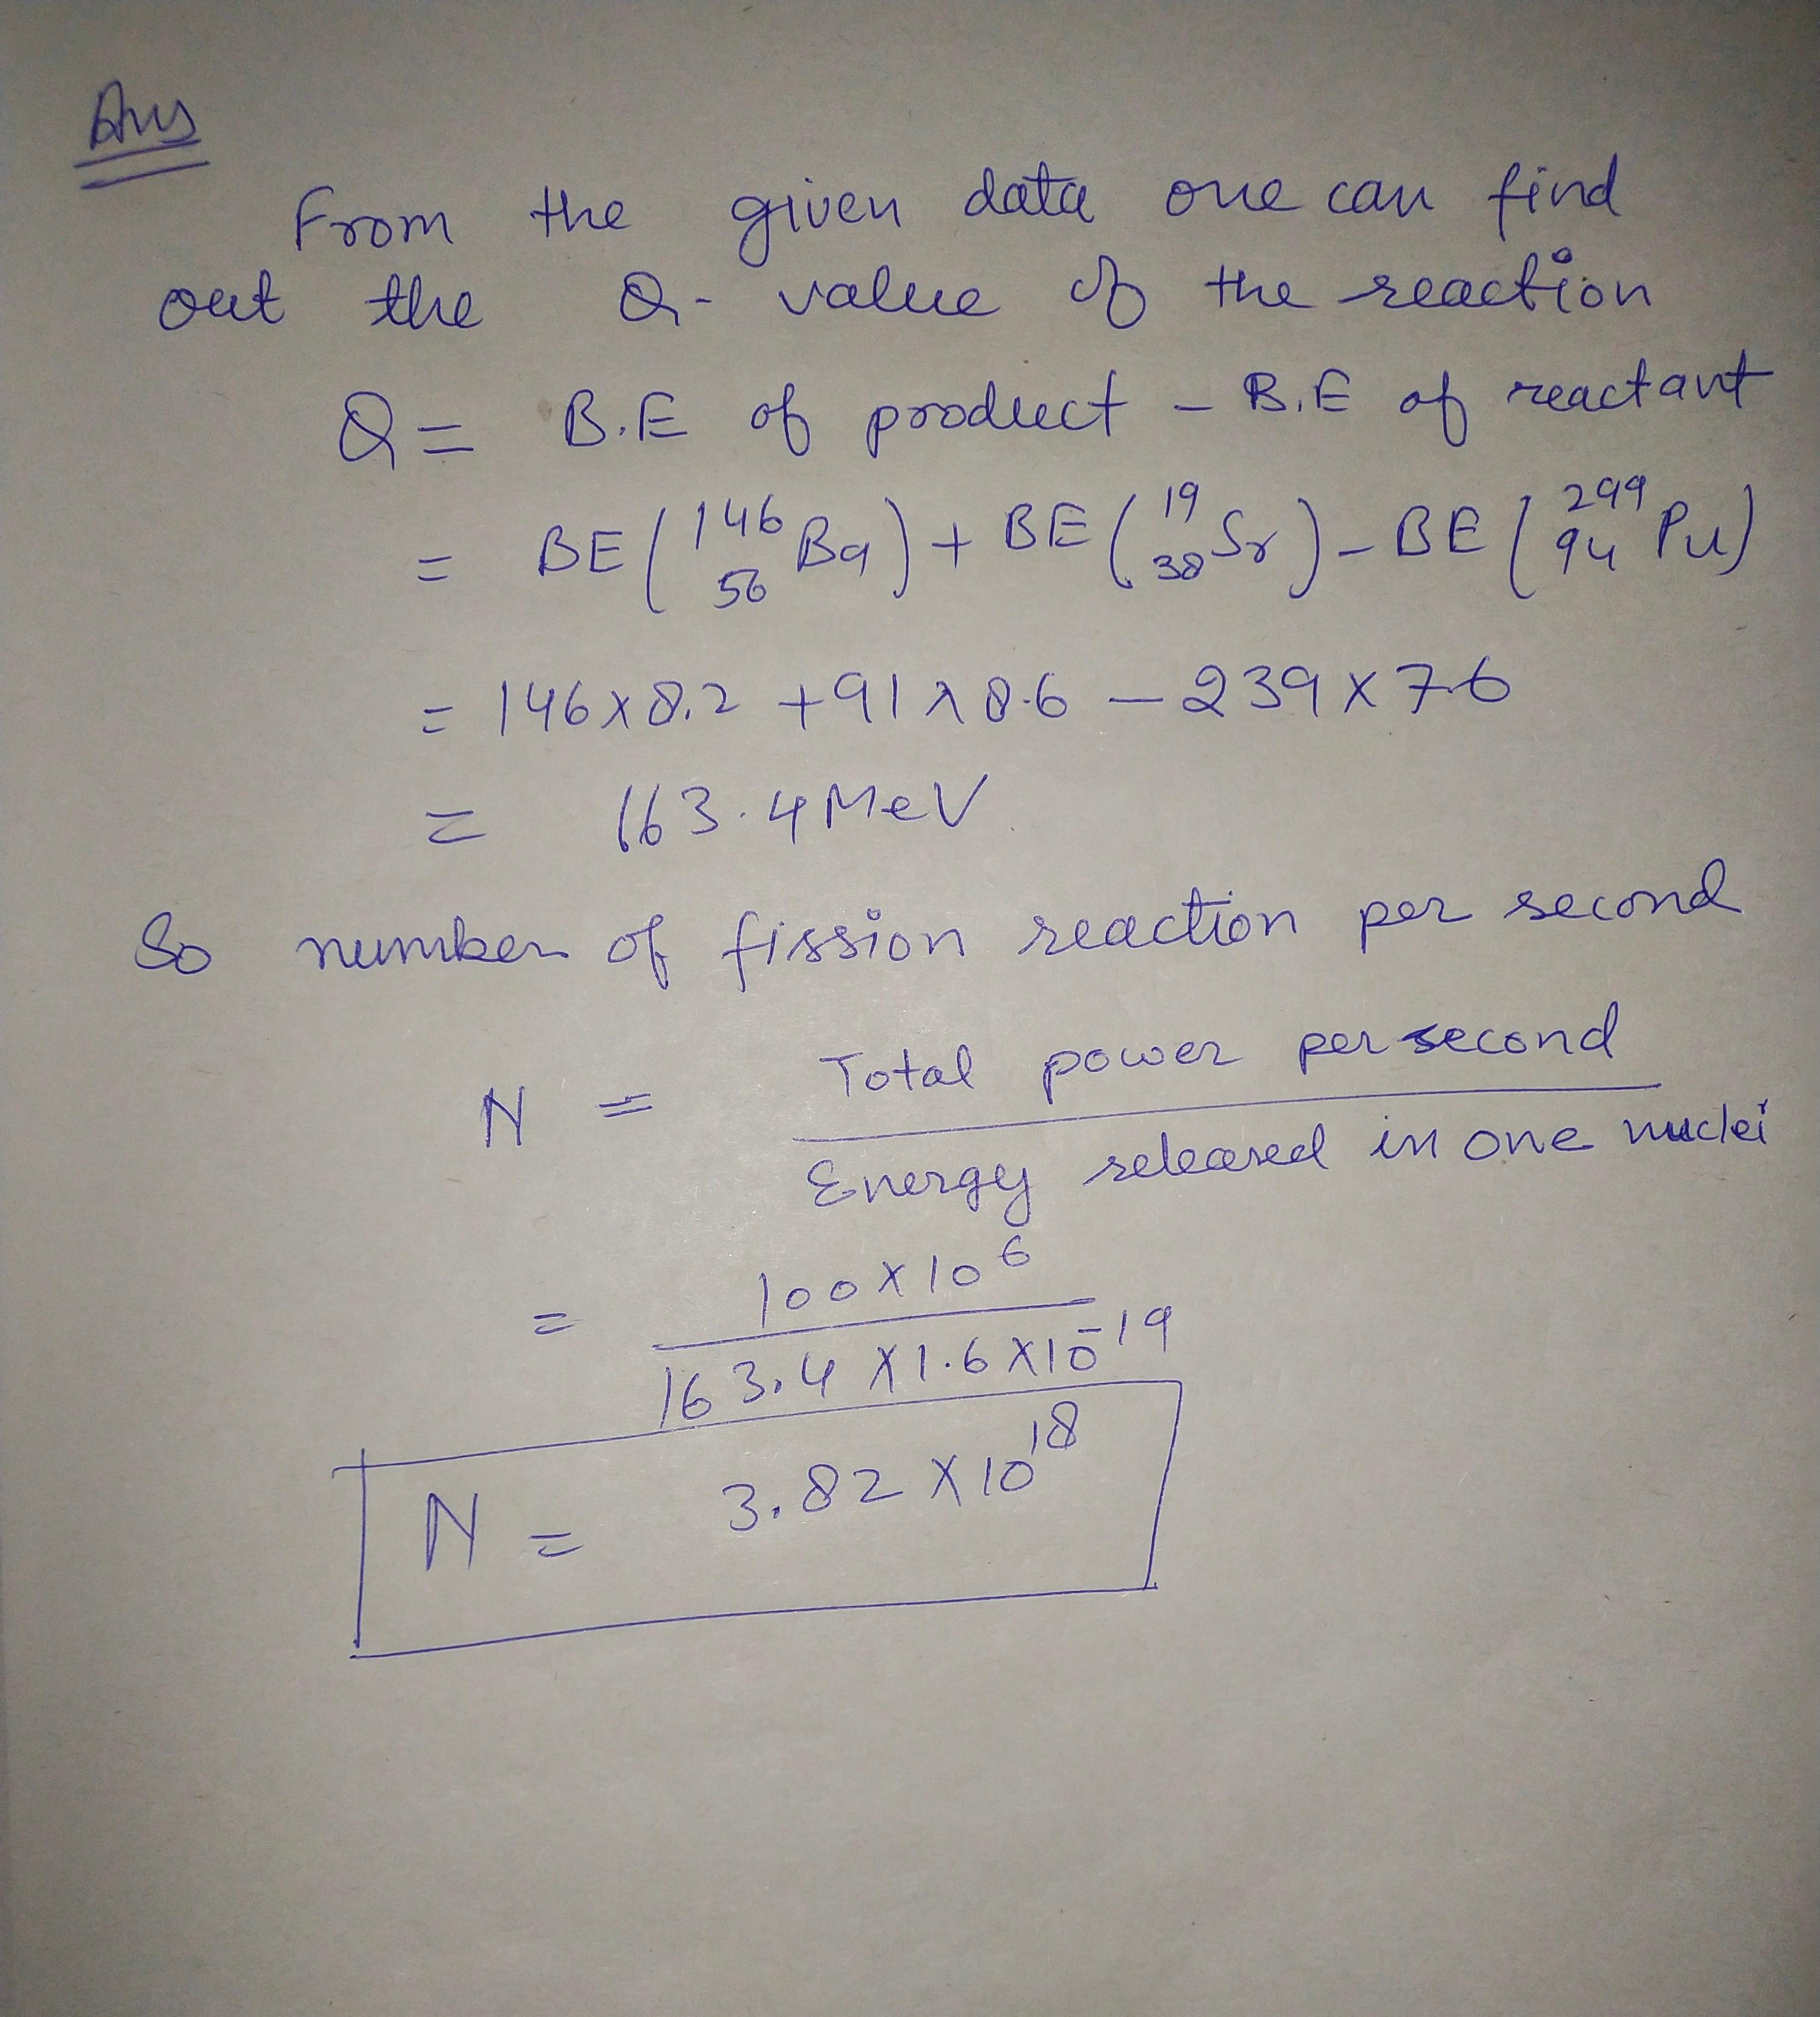 Ans
From the given data one can find
out the Q- value of the reaction
Q = B.E of product - B.E of reactant
= BE(¹⁴⁶₅₆Ba) + BE(¹⁹₃₈Sr) - BE(²⁹⁹₉₄Pu)
= 146 x 8.2 + 91 x 8.6 - 239 x 7.6
= 163.4 MeV
So number of fission reaction per second
N = Total power per second
Energy released in one nuclei
= 100 x 10⁶
163.4 x 1.6 x 10⁻¹⁹
N = 3.82 x 10¹⁸